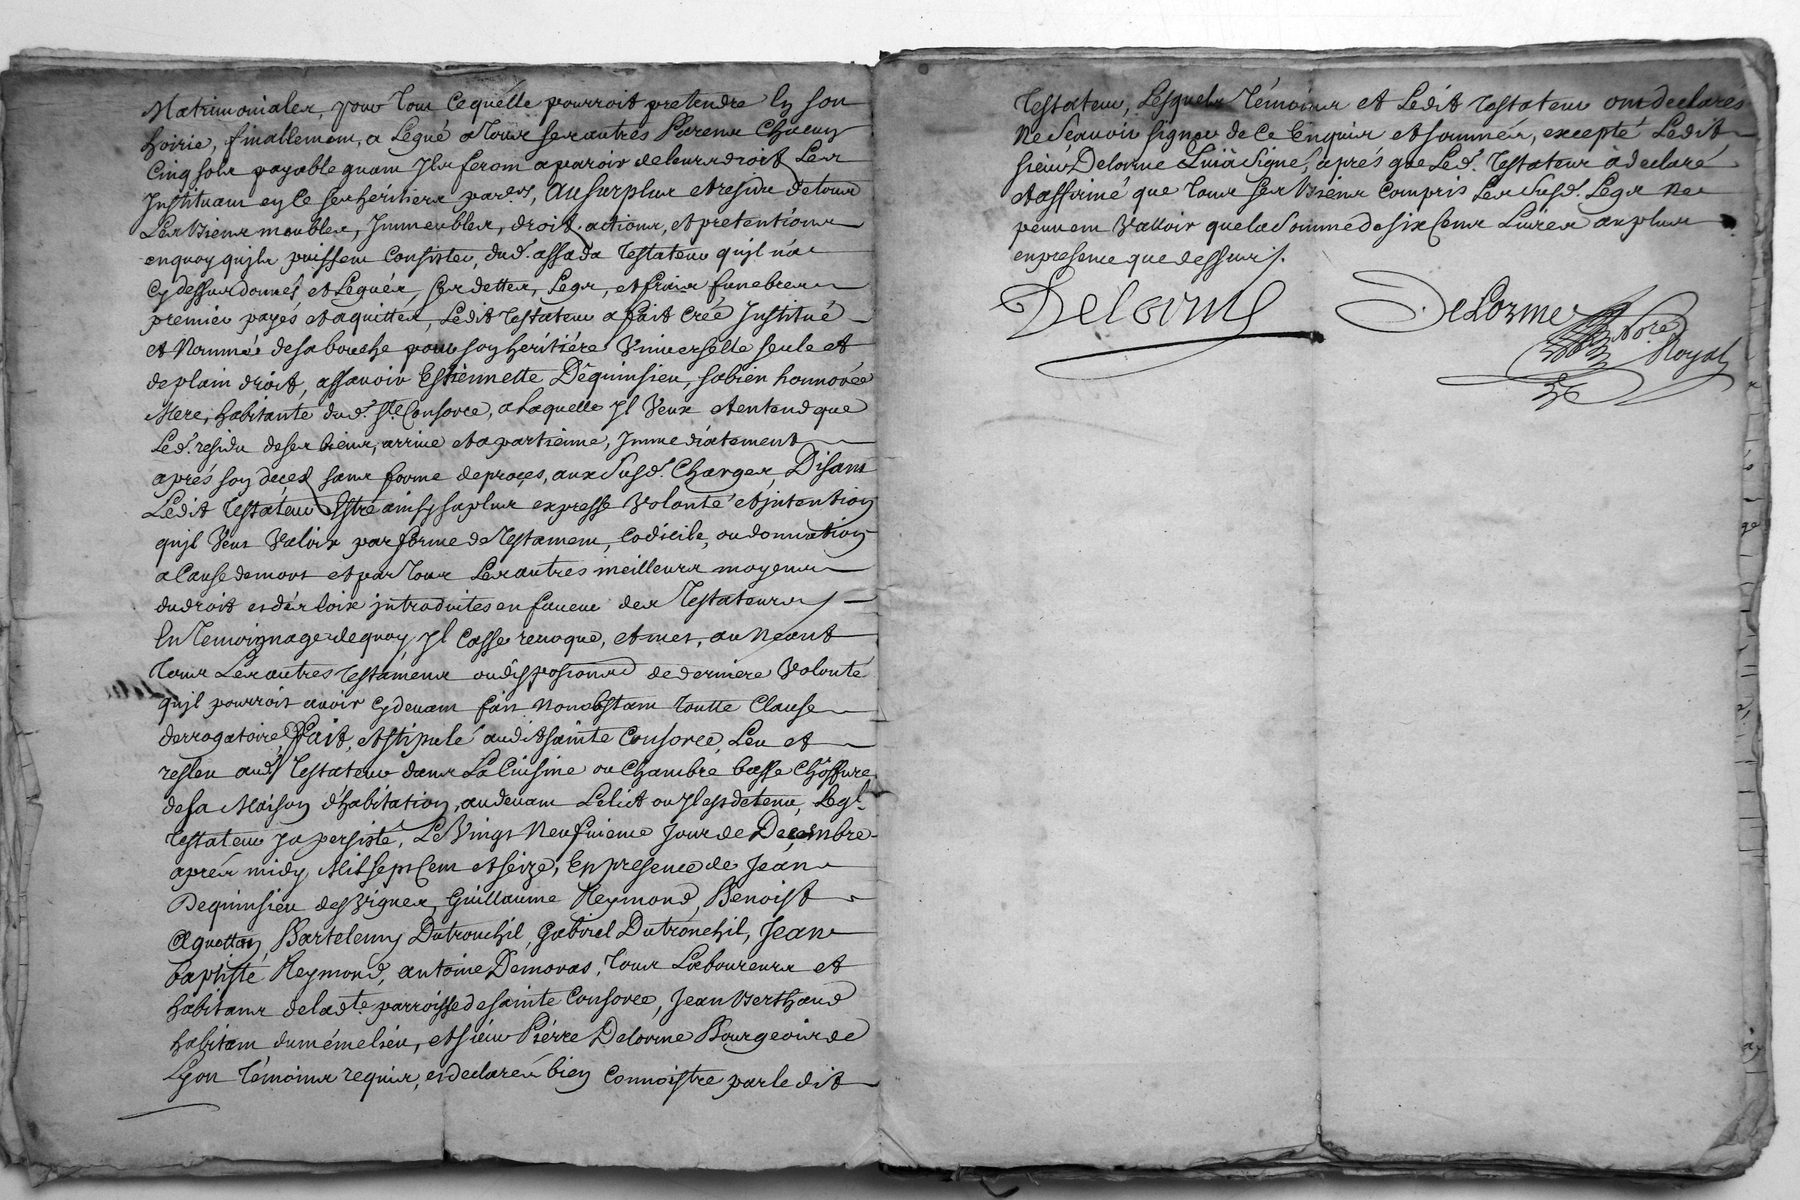 Matrimoniales, pour tout ce quelle pourroit pretendre En son
hoirie, finallement, a Legué a tous ses autres Parens Chacun
Cinq sols payable quant Ils feront aparoir de leurs droit Les
Instituant en ce ses héritiers par.ers, Au surplus et residu de tous
Les Biens meubles, Immeubles, droit, actions, et pretentions
enquoy quils puissent Consister, dud. Testateur qu'jl n'a
Cy dessus donnés et Légués, ses dettes, Legs, et frais funebres
premier payés et aquittes, Ledit Testateur a fait Créé Institué
et Nommée de sa bouche pour son heritiére Vniverselle seule et
de plain droit, assavoir Estiennette Déquinsieu, sa bien honnorée
Mere, habitante dud. Ste. Consorce, a Laquelle Jl Veux et entend que
Led. residu de ses biens, arrive et apartienne, Immediatement
aprés son decez sans forme de proces, aux susd. Charges, Disant
Ledit Testateur Estre ainsy sa plus expresse Volonté et jntention
qujl Veut Valoir par forme de Testament, Codicile, ou donnation
a Cause de mort et par tous Les autres meilleurs moyens
du droit et des loix jntroduites en faveur des Testateurs
En Temoignage de quoy, Jl Casse revoque, et met, au Neant
tous Les autres testamens ou dispositions de derniere Volonté
qujl pourroit avoir cy devant fait nonobstant toutte Clause
derrogatoire, Fait, et stipulé audit sainte Consorce, Leu et
resleu aud. Testateur dans La Cuisine ou Chambre basse
de sa Maison d'habitation, au devant Le lict ou Jl est detenu,
Testateur ja persisté, Le Vingt Neufuieme Jour de Decembre
aprés midy Mil sept Cent et seize, En presence de Jean
Dequinsieu des Vignes, Guillaume Reymond, Benoist
Barteleny Dutronchil, Gabriel Dutronchil, Jean
baptiste Reymond, antoine Demoras, tous Laboureurs et
habitans de lad.te parroisse de sainte Consorce, Jean Berthaud
habitant du méme lieu, et sieur Pierre Delorme Bourgeois de
Lyon témoins requis, et declarés bien Connoistre par le dit
Testateur, Lesquels témoins et Ledit Testateur ont declarés
Ne sçauoir signer de Ce Enquis et sommés, excepté Ledit
sieur Delorme Lui a signé, aprés que Led. Testateur à declaré
et affirmé que tous ses Biens Compris Les susd. Legs ne
peuvent Valloir que la somme de six Cens Livres au plus
en presence que dessus.
Delorme
DeLorme
Nore.
Royal